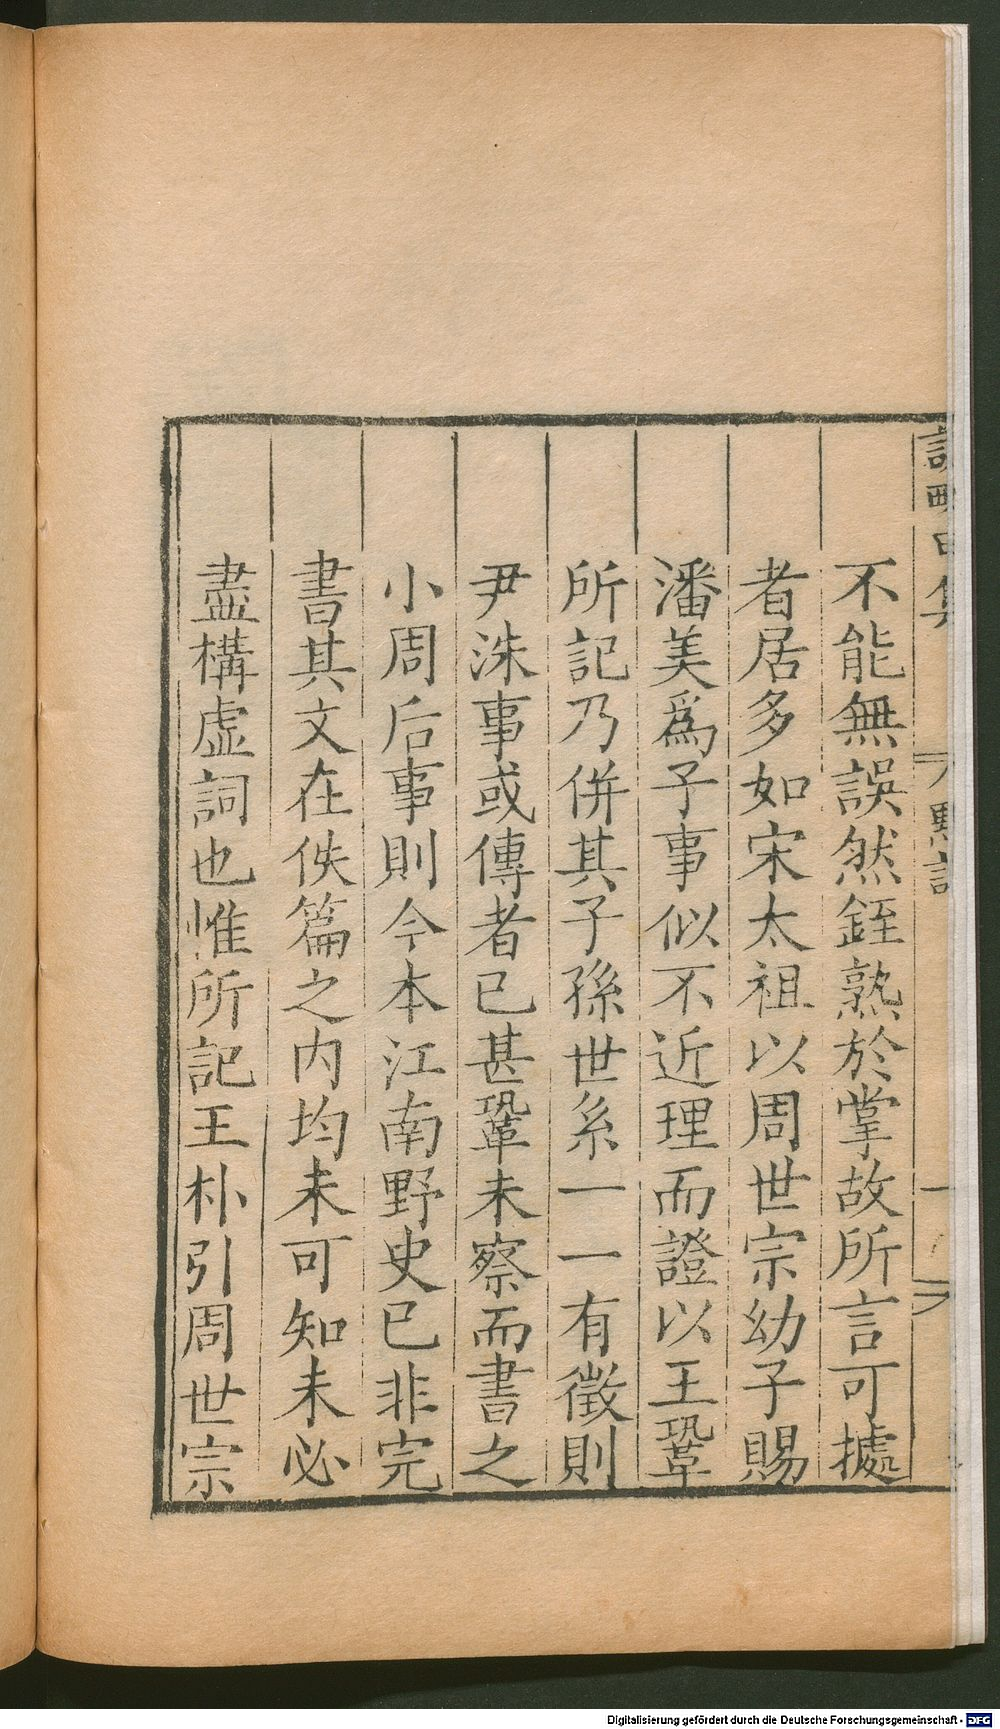 不能無誤然銍熟於掌故所言可據
者居多如宋太祖以周世宗幼子賜
潘美爲子事似不近理而證以王鞏
所記乃併其子孫世系一一有徵則
尹洙事或傳者已甚鞏未察而書之
小周后事則今本江南野史已非完
書其文在佚篇之內均未可知未必
盡構虛詞也惟所記王朴引周世宗
Digitalisierung gefördert durch die Deutsche Forschungsgemeinschaft - DFG